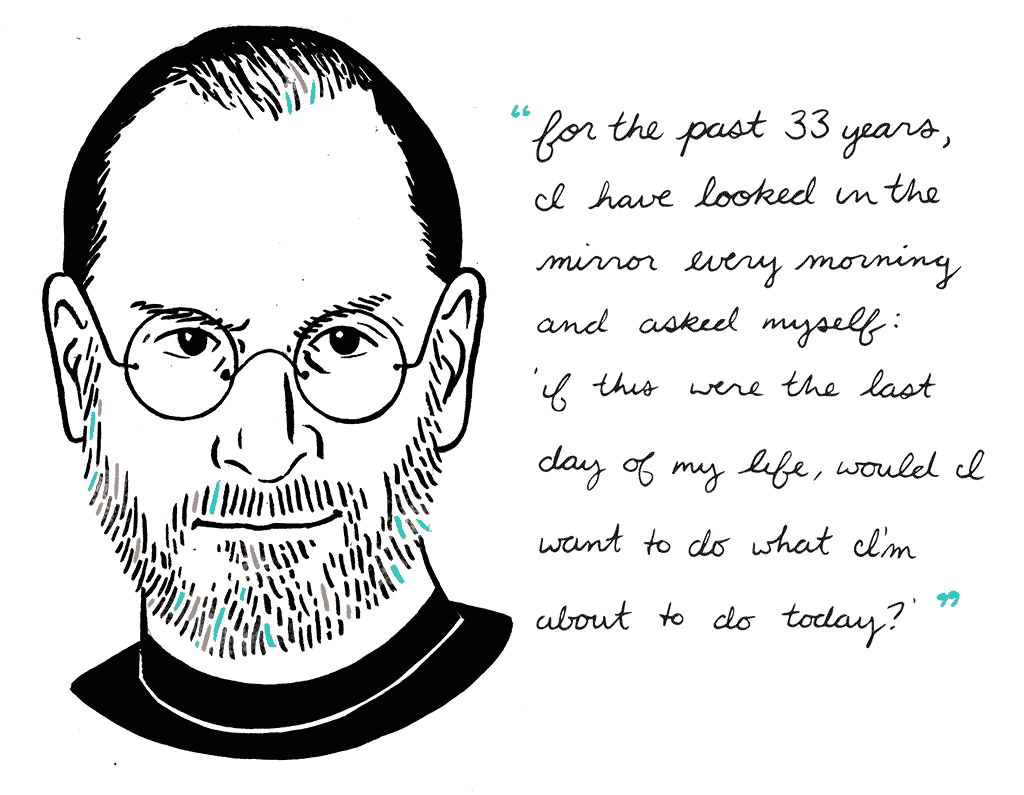 “for the past 33 years,
I have looked in the
mirror every morning
and asked myself:
'if this were the last
day of my life, would I
want to do what I'm
about to do today?' ”